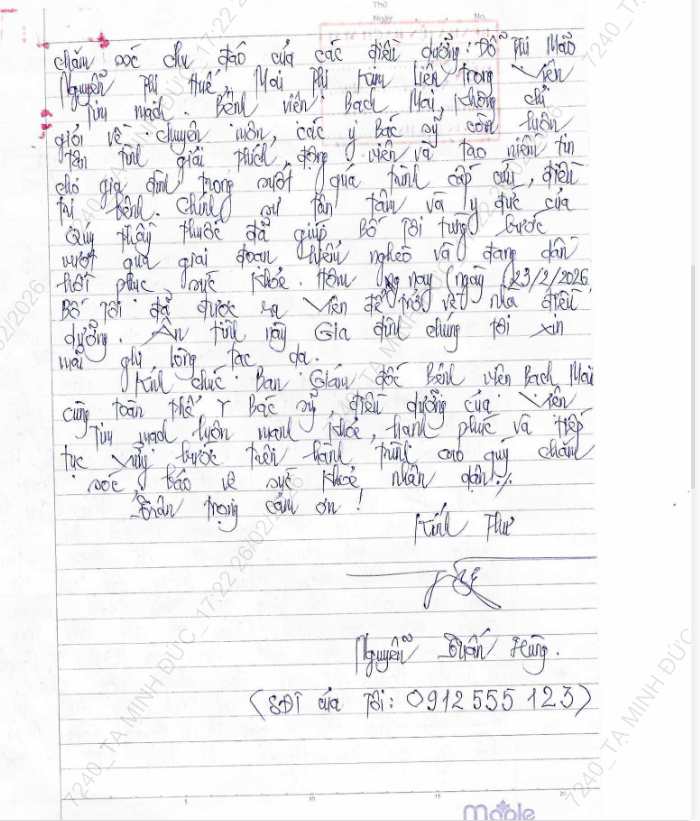 Thứ
Ngày No.
chăm sóc chu đáo của các điều dưỡng: Đỗ Thị Mão
Nguyễn Thị Huế, Mai Thị Kim Liên trong Viện
Tim mạch. Bệnh viện Bạch Mai, không chỉ
giỏi về chuyên môn, các y Bác sỹ còn luôn
tận tình giải thích, động viên và tạo niềm tin
cho gia đình trong suốt quá trình cấp cứu, điều
trị bệnh. Chính sự tận tâm và y đức của
Quý thầy thuốc đã giúp Bố tôi từng bước
vượt qua giai đoạn hiểm nghèo và đang dần
hồi phục sức khỏe. Hôm nay (ngày 23/2/2026
Bố tôi đã được ra Viện để trở về nhà điều
dưỡng. Ân tình này Gia đình chúng tôi xin
mãi ghi lòng tạc dạ.
Kính chúc Ban Giám đốc Bệnh viện Bạch Mai
cùng toàn thể Y Bác sỹ, điều dưỡng của Viện
Tim mạch luôn mạnh khỏe, hạnh phúc và tiếp
tục vững bước trên hành trình cao quý chăm
sóc, bảo vệ sức khỏe nhân dân./.
Trân trọng cảm ơn!
Kính Thư
Nguyễn Tuấn Hùng.
(SĐT của Tôi: 0912 555 123)
7240_TẠ MINH ĐỨC_17:22 26/02/2026